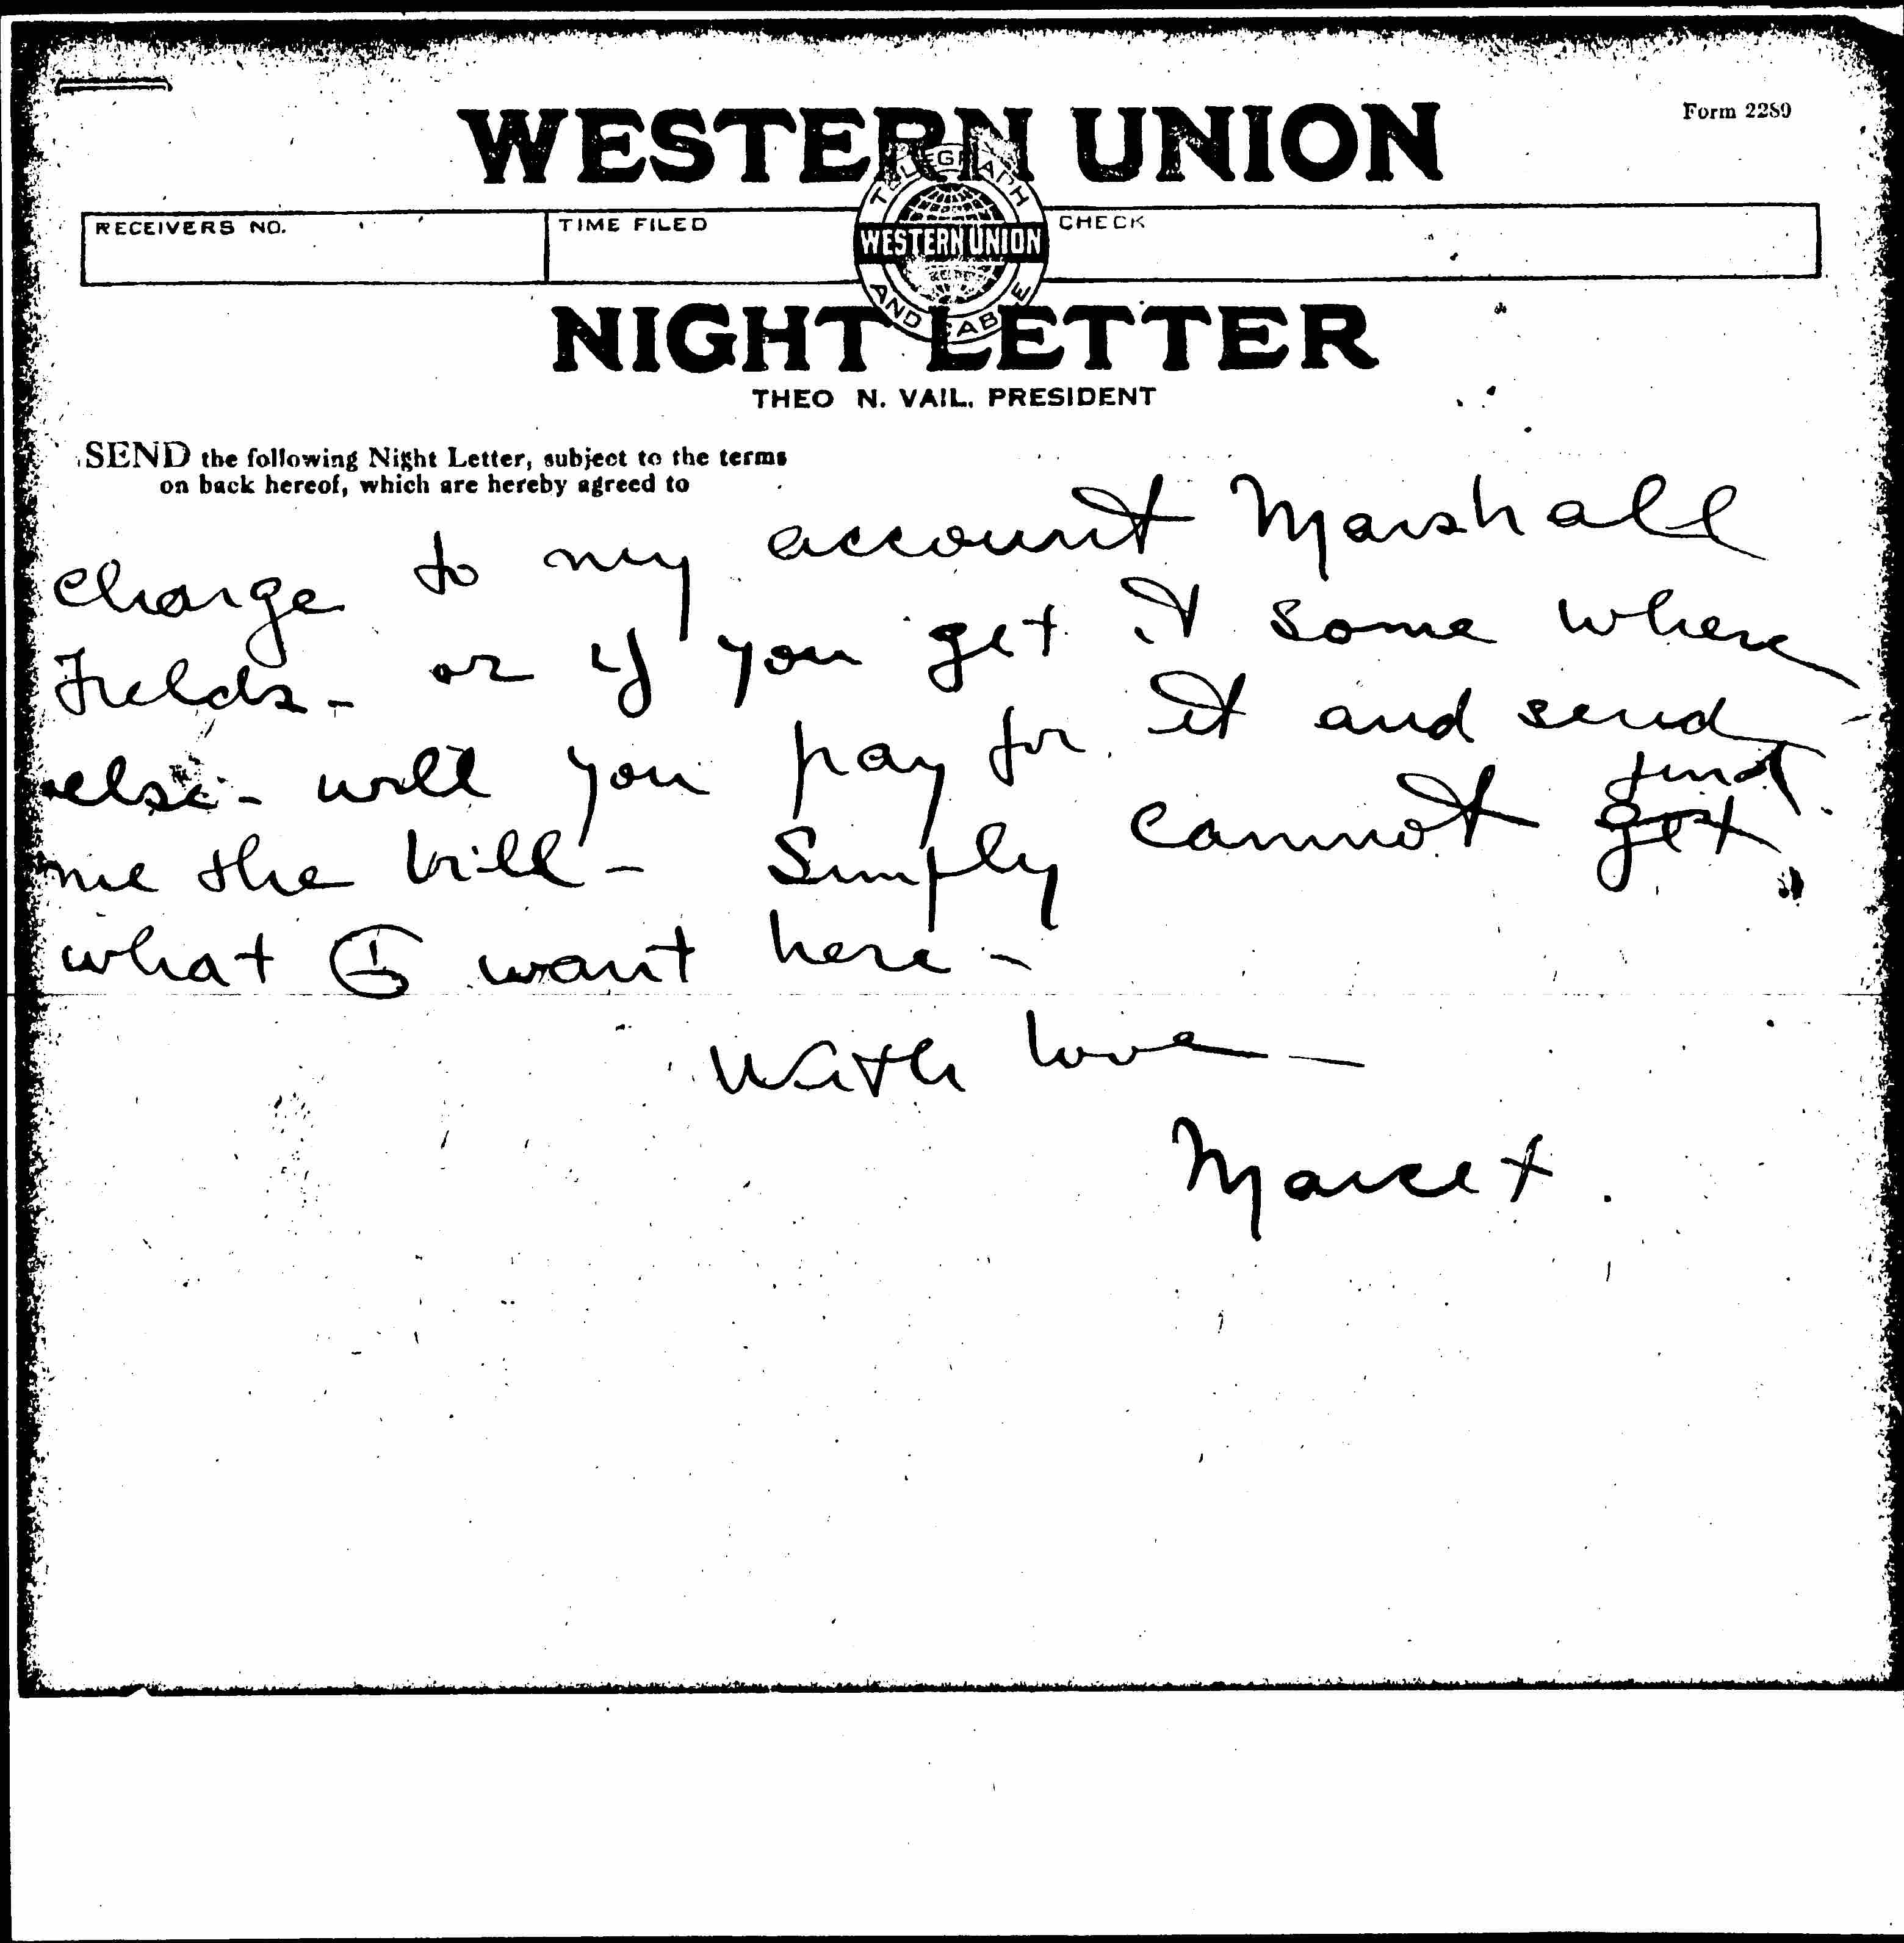 Form 2289
WESTERN UNION
TELEGRAPH
WESTERN UNION
AND CABLE
RECEIVERS NO.
TIME FILED
CHECK
NIGHT LETTER
THEO N. VAIL, PRESIDENT
SEND the following Night Letter, subject to the terms
on back hereof, which are hereby agreed to
charge to my account Marshall
Fields - or if you get it some where
else - will you pay for it and send
find
me the bill - Simply cannot get
what I want here -
With love -
Marcet.